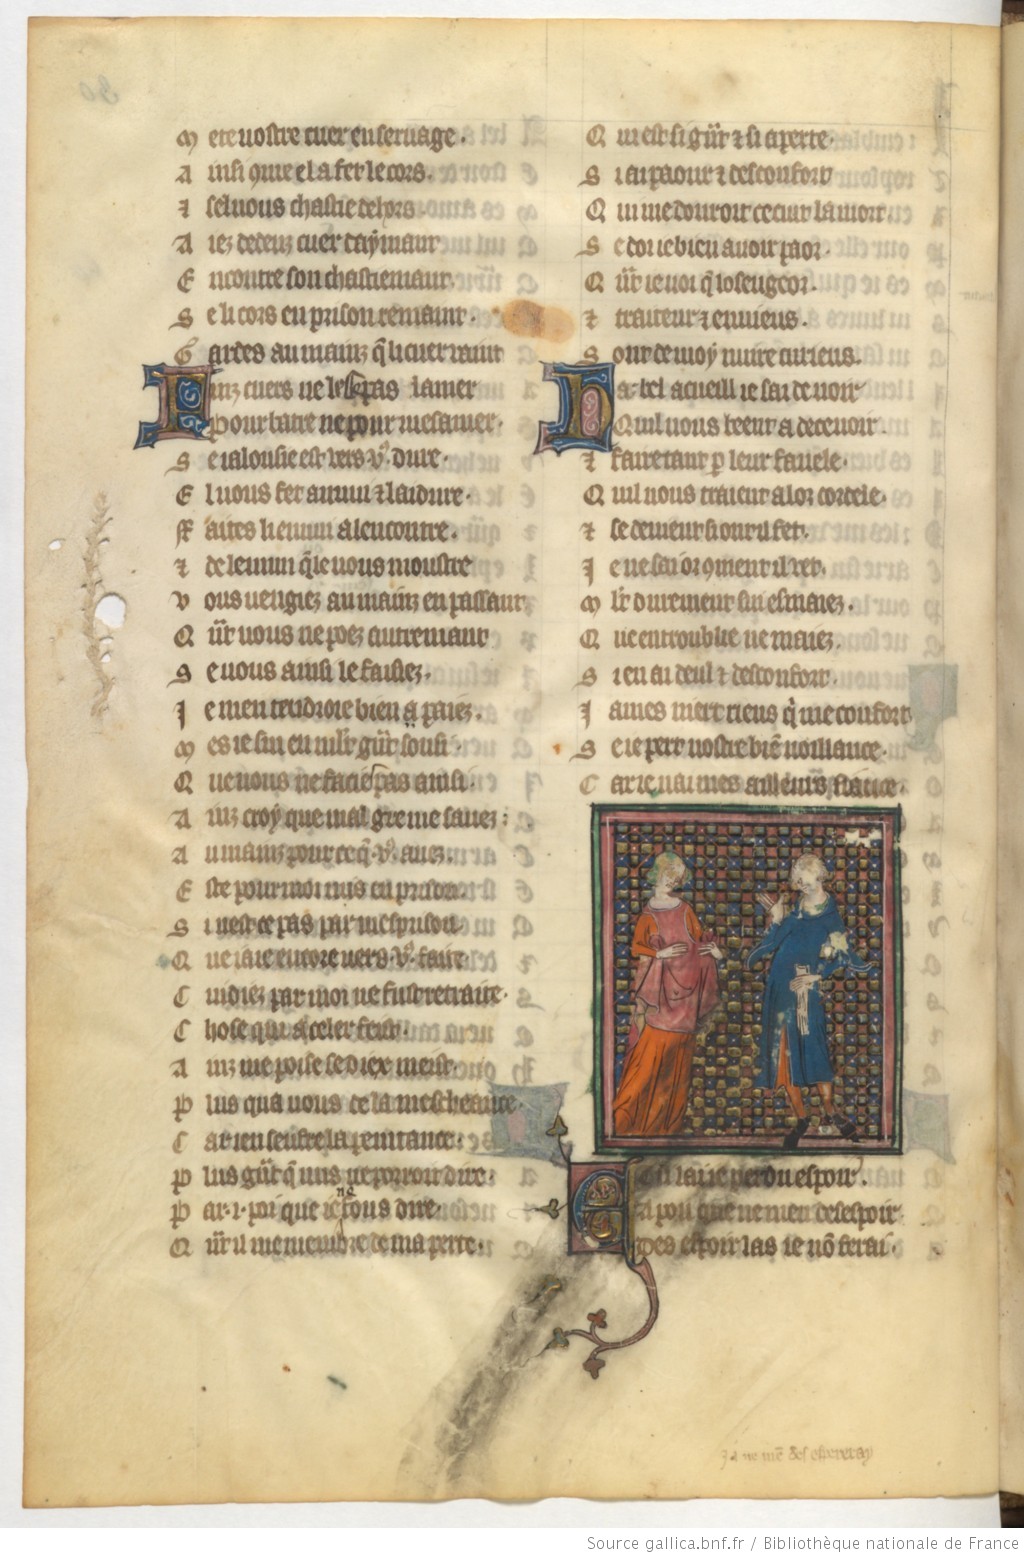 M ete uostre cuer en seruage.
A insi 9me el a fet le cors.
⁊ sel uous chastie dehors
A iez dedenz cuer daymant
E ncontre son chastiement.
S e li cors en prison remaint.
G ardez au mainz q̃ li cuer vaint
F inz cuers ne lest pas lamer
Pour batre ne pour mesamer.
S e ialousie est vers v9. dure.
E l uous fet annui ⁊ laidure.
ff aites li ennui alencontre.
⁊ de lennui q̃le uous monstre
V ous uengiez au mainz en passant
Q ñt uous ne poez autrement
S e uous ainsi le faisiez.
J e men tendroie bien a paiez.
M es ie sui en mlt g̃nt sousi.
Q ue uous ne faciez pas ainsi.
A inz croy que mal gre me sauez:
A u mainz pour ce q̃. v9. auez.
E ste pour moi mis en prison.
S i nest ce pas par mesprison
Q ue iaie encore uers. v9. faite.
C uidiez par moi ne fust retraite.
C hose qui a celer feist.
A inz me poise se diex meist.
P lus qua uous de la mescheance.
C ar ien seufre la penitance.
P lus g̃nt q̃ nus ne porroit dire.
P ar .i. poi que ie ne fons dire.
Q ñt il me membre de ma perte.
Q ui est si g̃nt ⁊ si aperte.
S i ai paour ⁊ desconfort
Q ui me donront ce cuit la mort.
S e doi ie bien auoir paor.
Q ñt ie uoi q̃ losengeor.
⁊ traiteur ⁊ enuieus.
S ont de moy nuire curieus.
H a. bel acueill ie sai de uoir
Quil uous beent a deceuoir.
⁊ faire tant p leur fauele.
Q uil uous traient a lor cordele.
⁊ se deuient si ont il fet.
J e ne sai or 9ment il vet.
M lt durement sui esmaiez.
Q ue entroublie ne maiez.
S i en ai deul ⁊ desconfort.
J ames niert riens q̃ me confort
S e ie pert uostre bien uoillance.
C ar ie nai mes ailleurs fiance.
E nsi lai ie perdu espoir.
A poi que ne men desespoir.
Des espoir las ie nõ ferai.
Ja ne mẽ desespereray
Source gallica.bnf.fr / Bibliothèque nationale de France